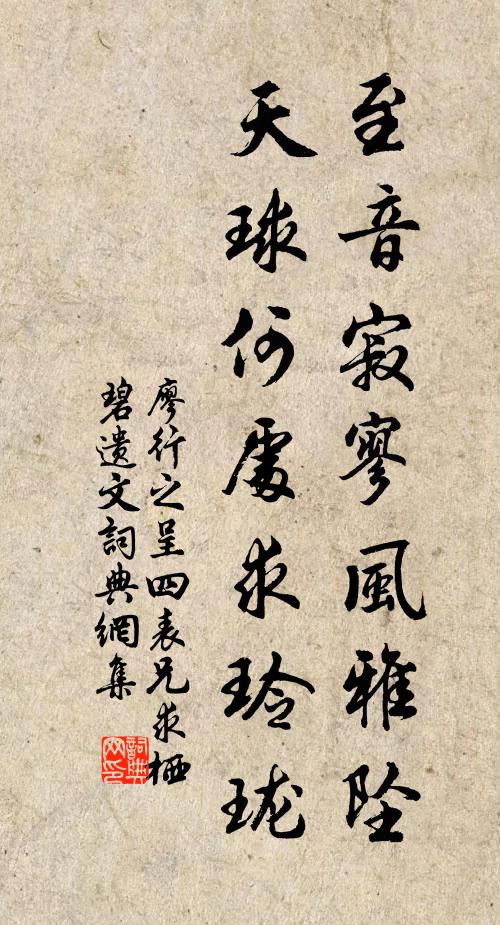 至音寂寥風雅墜
天球何處求玲珑
廖行之呈四表兄求栖
碧遺文詞典網集
詞典
网印